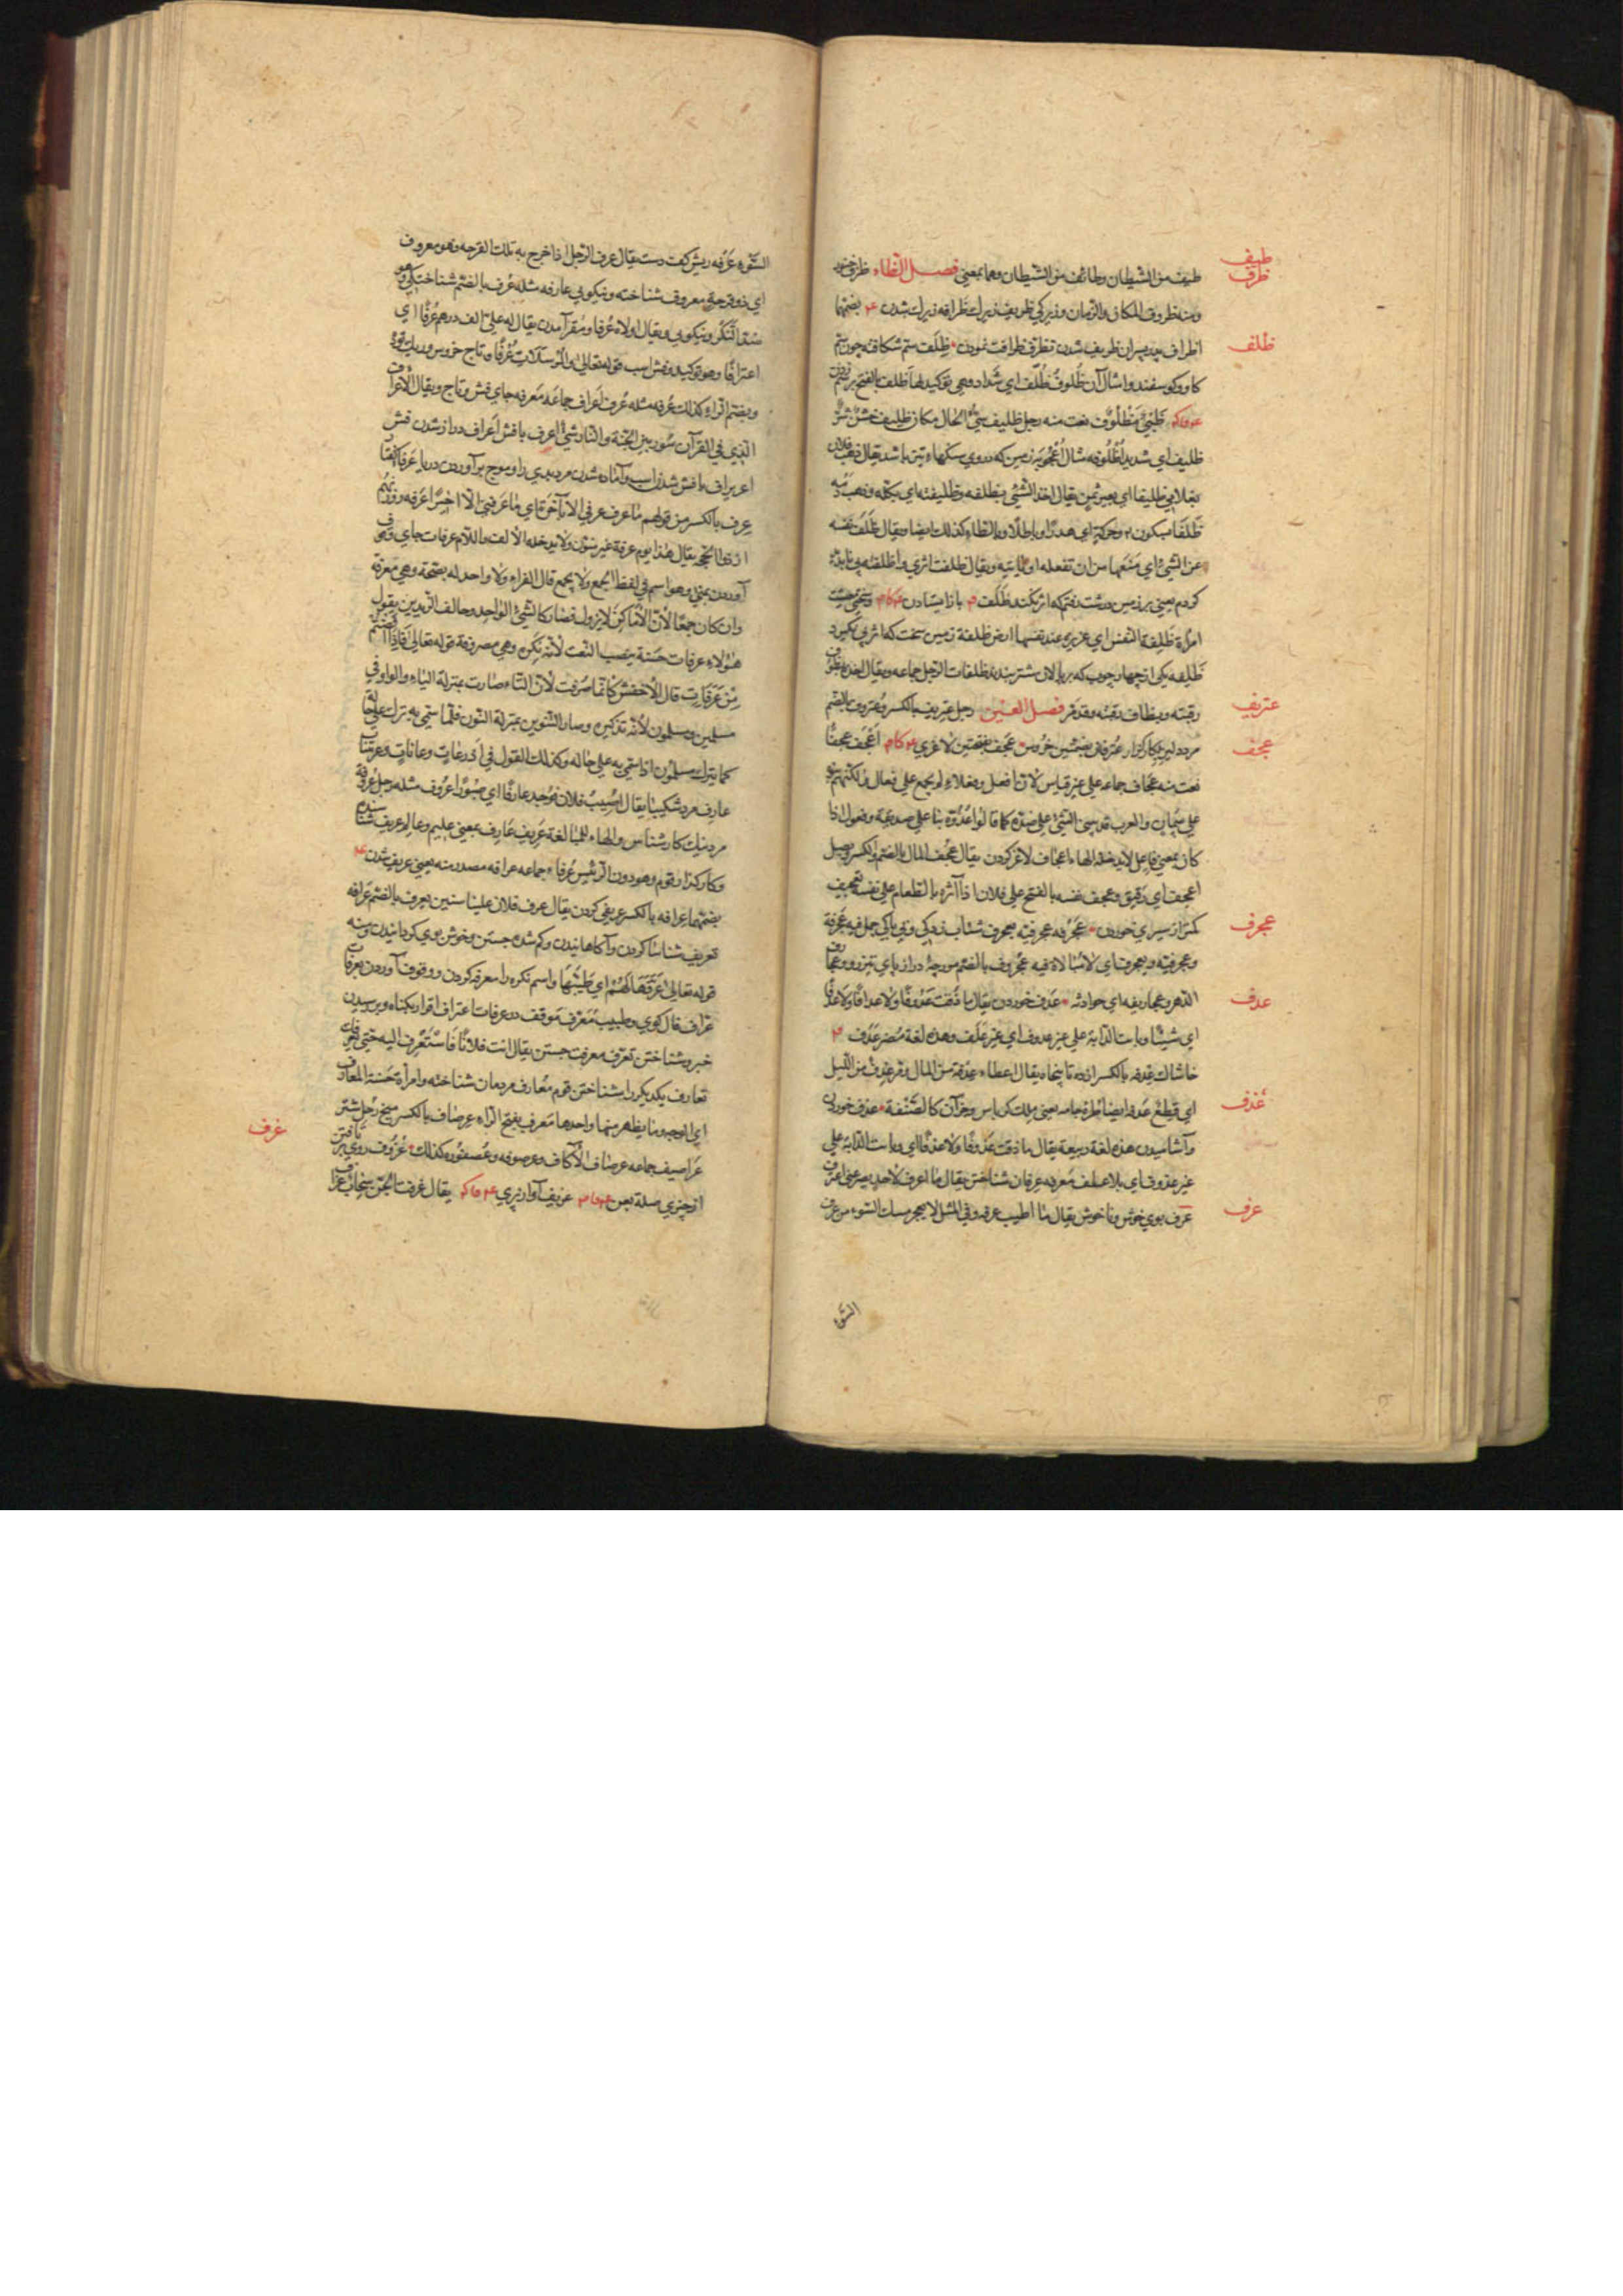 طيف
ظرف
طيف من الشيطان وطائف من الشيطان وهما بمعنى فصل الظاء ظرف خنور
ومنه ظروف المكان والزمان وزيركي ظريف زيرك ظرافه زيرك شدن بضمهما
ظلف
اظراف پسران ظريف شدن تظرف ظرافت نمودن ظلف ستم شكافه چون ستم
كاو وكوسفند وامثال آن ظلوف ظلف اي شداد وهي توكيد لها ظلف بالفتح بر
ظبي مظلوف نعت منه رجل ظليف سيّئ الحال مكان ظليف خشن
ظليف اي شديد اظلوفه مثال اعجوبه زمين كه دروي سنكهاء تيز باشد يقال ذهب فلان
بغلامي ظليفا اي بغير ثمن يقال اخذ الشئ بظلفه وظليفته اي بكله وذهب دمه
ظلفا بسكون وحركة اي هدرا وباطلا وبالظاء كذلك ايضا ويقال ظلف نفسه
عن الشئ اي منعها من ان تفعله او تأتيه ويقال ظلفت اثري واظلفته
كردم يعني بر زمين درشت رفتم كه اثر نكند ظلف بازايستادن
امراة ظلفة النفس اي عزيزه عند نفسها ارض ظلفة زمين سخت كه اثر پي نكيرد
ظلفه يكي از چهار چوب كه بر پالان شتر بندند ظلفات الرحل جماعه ويقال اخذ بظوف
عتريف
رقبته وبظاف رقبته وقد مر فصل العين رجل عتريف بالكسر وعتروف بالضم
عجف
مرد دلير بكاركزار عترفان بضمتين خروس عجف بفتحتين لاغري اعجف عجفا
نعت منه عجاف جماعه على غير قياس لان افعل وفعلاء لا يجمع على فعال ولكنهم بنوه
على سمان والعرب قد يبنى الشئ على ضده كما قالوا عدوة بنا على صديقة وفعول اذا
كان بمعنى فاعل لا يدخله الهاء اعجاف لاغر كردن يقال عجف المال بالضم والكسر ونصل
اعجف اي رقيق وعجف نفسه بالفتح على فلان اذا آثره بالطعام على نفسه تعجيف
عجرف
كمتر از سيري خوردن عجرفه عجرفيته تعجرف شتاب زدكي وبي باكي جمل فيه عجرفة
وعجرفيته وتعجرف اي لا مبالاة فيه عجروف بالضم مورچهٔ دراز پاي تيز رو وعجاريف
عدف
الدهر وعجاريفه اي حوادثه عدف خوردن يقال ما ذقت عدوفا ولا عدافا ولا عدفا
اي شيئا وباتت الدابة على غير عدوف اي غير علف وهذه لغة مضر عدف
خاشاك عدفه بالكسر از ده تا پنجاه يقال اعطاه عدفة من المال ومر عدف من الليل
عذف
اي قطع عدفه ايضا طرة جامه يعني ملك كرباس وجز آن كالصنفة عذف خوردن
وآشاميدن هذه لغة ربيعة يقال ما ذقت عذوفا ولا عذفا اي وباتت الدابة على
غير عذوف اي بلا علف معرفه عرفان شناختن يقال ما اعرف لاحد يصرعني اعرف
عرف
عرف بوي خوش وناخوش يقال ما اطيب عرفه وفي المثل لا يعجز مسك السوء من عرف
السوء
السوء عرفه ريش كف دست يقال عرف الرجل اذا خرج به تلك القرحه وهو معروف
اي ذو قرحة معروف شناخته ونيكويي عارفه مثله عرف بالضم شناختكي وهو
ضد النكر ونيكويي ويقال اولاه عرفا ومقر آمدن يقال له على الف درهم عرفا اي
اعترافا وهو توكيد وفش اسب قوله تعالى والمرسلات عرفا وتاج خروس
وبضم الراء كذلك عرفه مثله عرف اعراف جماعة معرفه جاي فش وتاج ويقال الاعراف
الذي في القرآن سور بين الجنة والنار شئ اعرف با فش اعراف دراز شدن فش
اعريراف با فش شدن اسب وآماده شدن مرد بدي را وموج برآوردن دريا
عرف بالكسر من قولهم ما عرف عرفي الا بآخرة اي ما عرفني الا اخيرا عرفه روز نهم
از ذو الحجه يقال هذا يوم عرفة غير منون ولا يدخله الالف واللام عرفات جاي وقوف
آوردن بمنى وهو اسم في لفظ الجمع ولا يجمع قال الفراء ولا واحد له بصحة وهي معرفة
وان كان جمعا لان الاماكن لا يزول فصار كالشئ الواحد وخالف الزيدين يقول
هؤلاء عرفات حسنة بنصب النعت لانه نكره وهي مصروفة قوله تعالى فاذا افضتم
من عرفات قال الاخفش كانما صرفت لان التاء صارت بمنزلة الياء والواو في
مسلمين ومسلمون لانه تذكيره وصار التنوين بمنزلة النون فلما سمي به ترك على حاله
كما يترك مسلمون اذا سمي به على حاله وكذلك القول في اذرعات وعانات وعريتنات
عارف مرد شكيبا يقال اصيب فلان فوجد عارفا اي صبورا عروف مثله رجل عروفة
مرد نيك كار شناس والهاء للمبالغة عريف عارف بمعنى عليم وعالم عريف شناسنده
وكاركذار قوم وهو دون الرئيس عرفاء جماعه عرافه مصدر منه يعني عريف شدن
بضمهما عرافه بالكسر عريفي كردن يقال عرف فلان علينا سنين يعرف بالضم عرافه
تعريف شناسا كردن وآكاهانيدن وكم شده جستن وخوش بوي كردانيدن ومنه
قوله تعالى عرفها لهم اي طيبها واسم نكره را معرفه كردن ووقوف آوردن بعرفات
عراف فال كوي وطبيب معرف موقف در عرفات اعتراف اقرار بكناه وپرسيدن
خبر وشناختن تعرف معرفت جستن يقال ائت فلانا فاستعرف اليه حتى يعرفك
تعارف يكديكر را بشناختن قوم معارف مردمان شناخته وامرأة حسنة المعارف
اي الوجه وما يظهر منها واحدها معرف بفتح الراء عرصاف بالكسر ميخ رحل شتر
عزف
عراصيف جماعه عرصاف الاكاف وعرصوفه وعصفوره كذلك عزوف روي برتافتن
از چيزي صلة بعن عزيف آواز پري يقال عزفت الجن